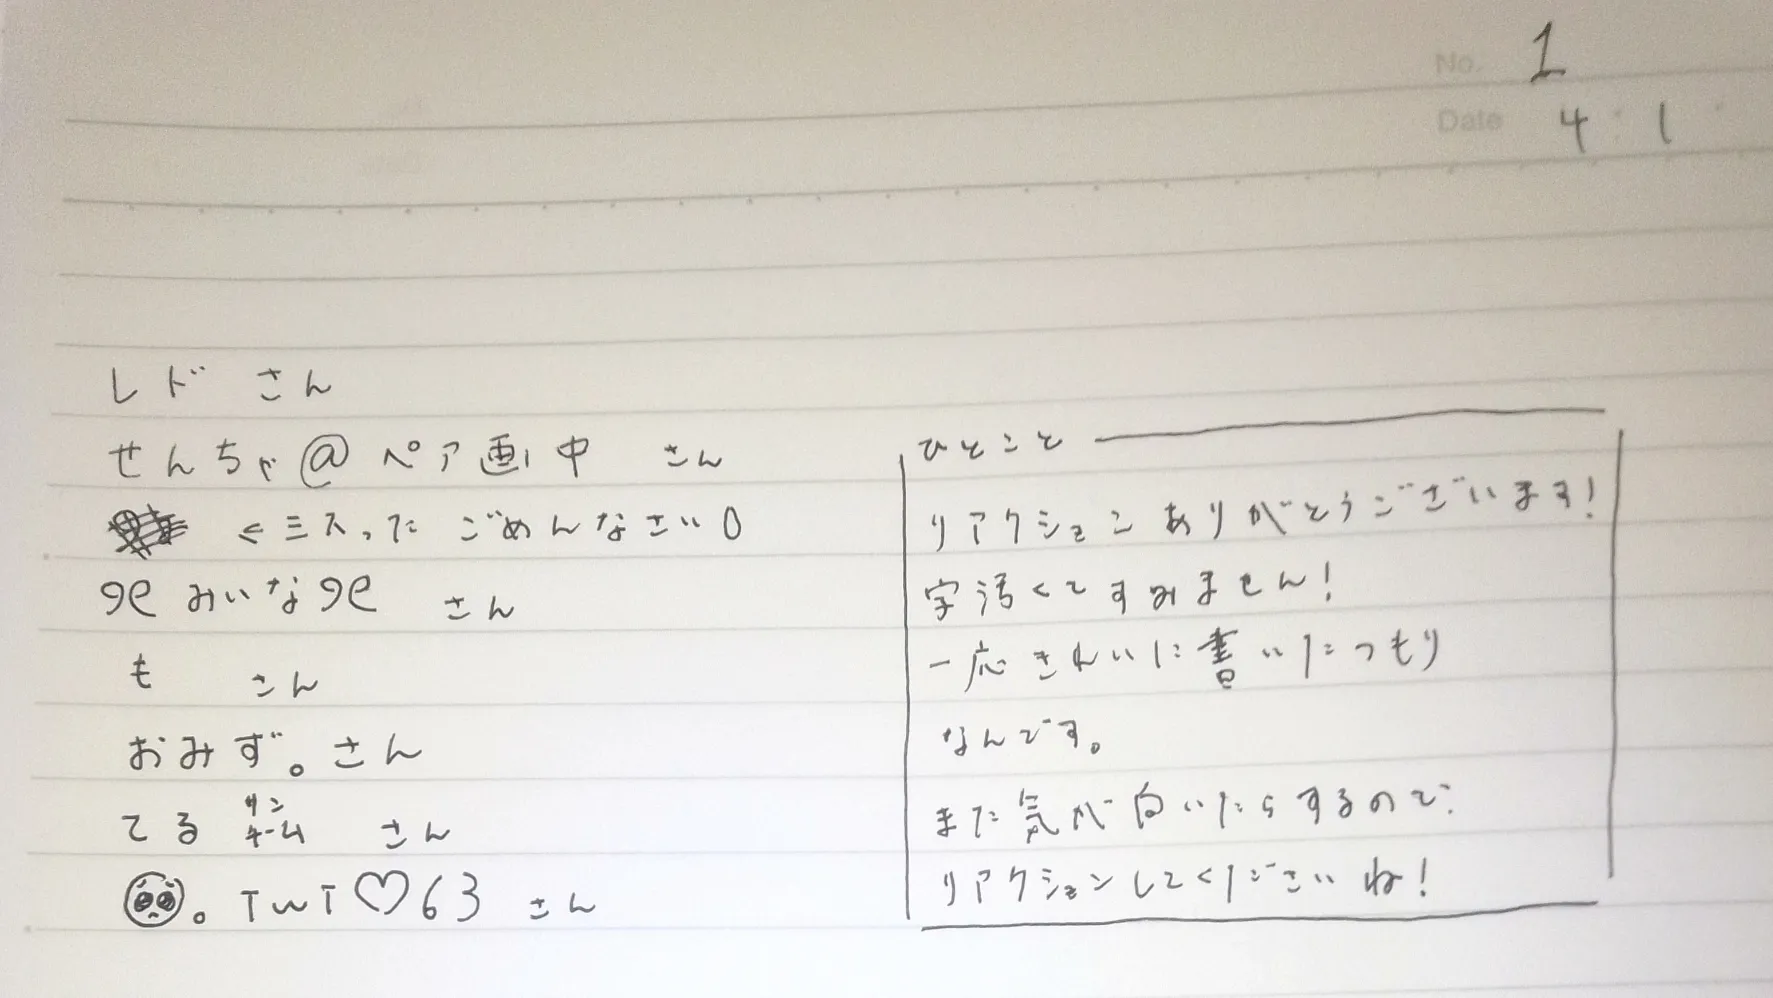 No. 1
Date 4 1
レド さん
せんちゃ@ ペア画中 さん
←ミスった ごめんなさい0
୨୧ みいな୨୧ さん
も さん
おみず。さん
てる サンキーム さん
🥺。TwT♡63 さん
ひとこと
リアクションありがとうございます!
字汚くてすみません!
一応きれいに書いたつもり
なんです。
また気が向いたらするので
リアクションしてくださいね!